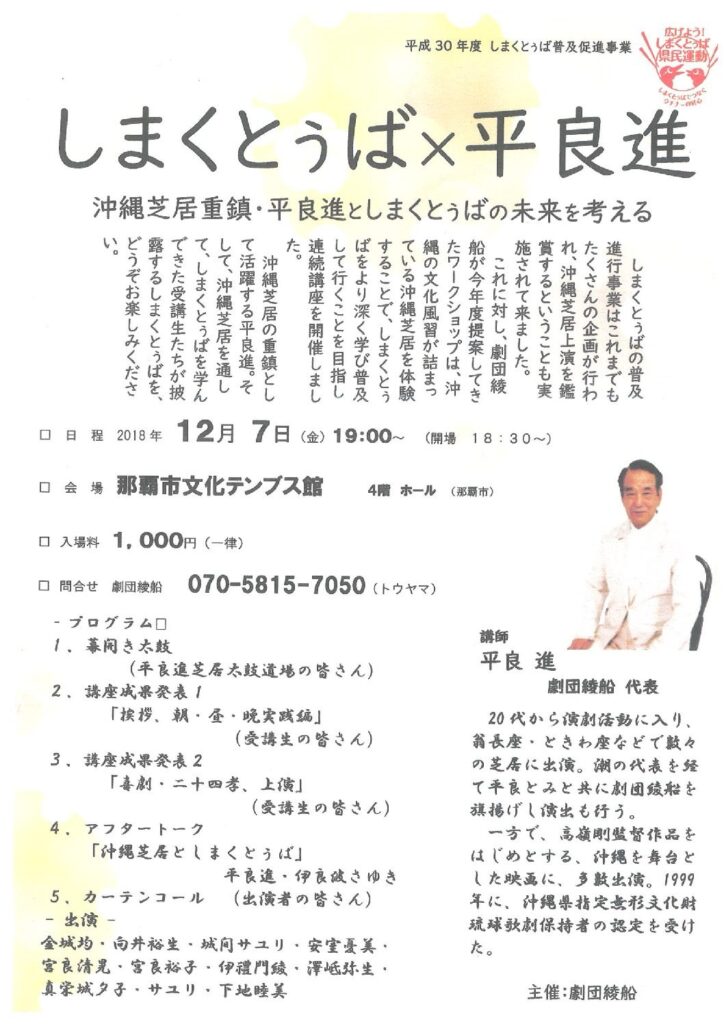 平成30年度 しまくとぅば普及促進事業
広げよう!
しまくとぅば
県民運動
しまくとぅば×平良進
沖縄芝居重鎮・平良進としまくとぅばの未来を考える
しまくとぅばの普及
進行事業はこれまでも
たくさんの企画が行わ
れ、沖縄芝居上演を鑑
賞するということも実
施されて来ました。
これに対し、劇団綾
船が今年度提案してき
たワークショップは、沖
縄の文化風習が詰まっ
ている沖縄芝居を体験
することで、しまくとぅ
ばをより深く学び普及
して行くことを目指し
連続講座を開催しまし
た。
沖縄芝居の重鎮とし
て活躍する平良進。そ
して、沖縄芝居を通し
て、しまくとぅばを学ん
できた受講生たちが披
露するしまくとぅばを、
どうぞお楽しみくださ
い。
□ 日 程 2018年 12月 7日(金)19:00~ (開場 18:30~)
□ 会 場 那覇市文化テンブス館 4階 ホール (那覇市)
□ 入場料 1,000円(一律)
□ 問合せ 劇団綾船 070-5815-7050(トウヤマ)
- プログラム□
1.幕開き太鼓
(平良進芝居太鼓道場の皆さん)
2.講座成果発表1
「挨拶、朝・昼・晩実践編」
(受講生の皆さん)
3.講座成果発表2
「喜劇・二十四孝、上演」
(受講生の皆さん)
4.アフタートーク
「沖縄芝居としまくとぅば」
平良進・伊良波さゆき
5.カーテンコール (出演者の皆さん)
- 出演 -
金城均・向井裕生・城間サユリ・安室憂美・
宮良清晃・宮良裕子・伊禮門綾・澤岻弥生・
真栄城夕子・サユリ・下地睦美
講師
平良 進
劇団綾船 代表
20代から演劇活動に入り、
翁長座・ときわ座などで数々
の芝居に出演。潮の代表を経
て平良とみと共に劇団綾船を
旗揚げし演出も行う。
一方で、高嶺剛監督作品を
はじめとする、沖縄を舞台と
した映画に、多数出演。1999
年に、沖縄県指定無形文化財
琉球歌劇保持者の認定を受け
た。
主催:劇団綾船